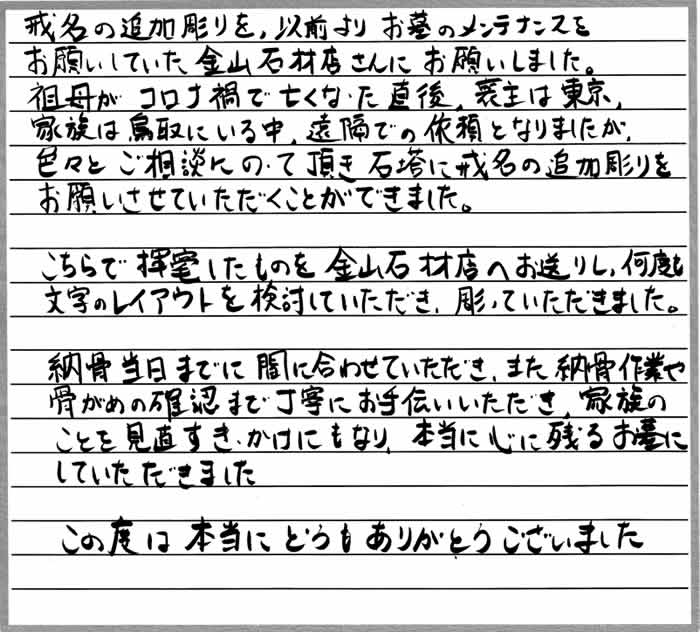 戒名の追加彫りを、以前より お墓のメンテナンスを
お願いしていた 金山石材店さんに お願いしました。
祖母が コロナ禍で亡くなった直後、喪主は東京、
家族は鳥取にいる中、遠隔での依頼となりましたが、
色々と ご相談にのって頂き 石塔に戒名の追加彫りを
お願いさせていただくことができました。
こちらで 揮毫したものを 金山石材店へお送りし、何度も
文字のレイアウトを検討していただき、彫っていただきました。
納骨当日までに 間に合わせていただき、また 納骨作業や
骨がめの確認まで丁寧にお手伝いいただき、家族の
ことを見直すきっかけにもなり、本当に心に残るお墓に
していただきました
この度は 本当に どうも ありがとうございました